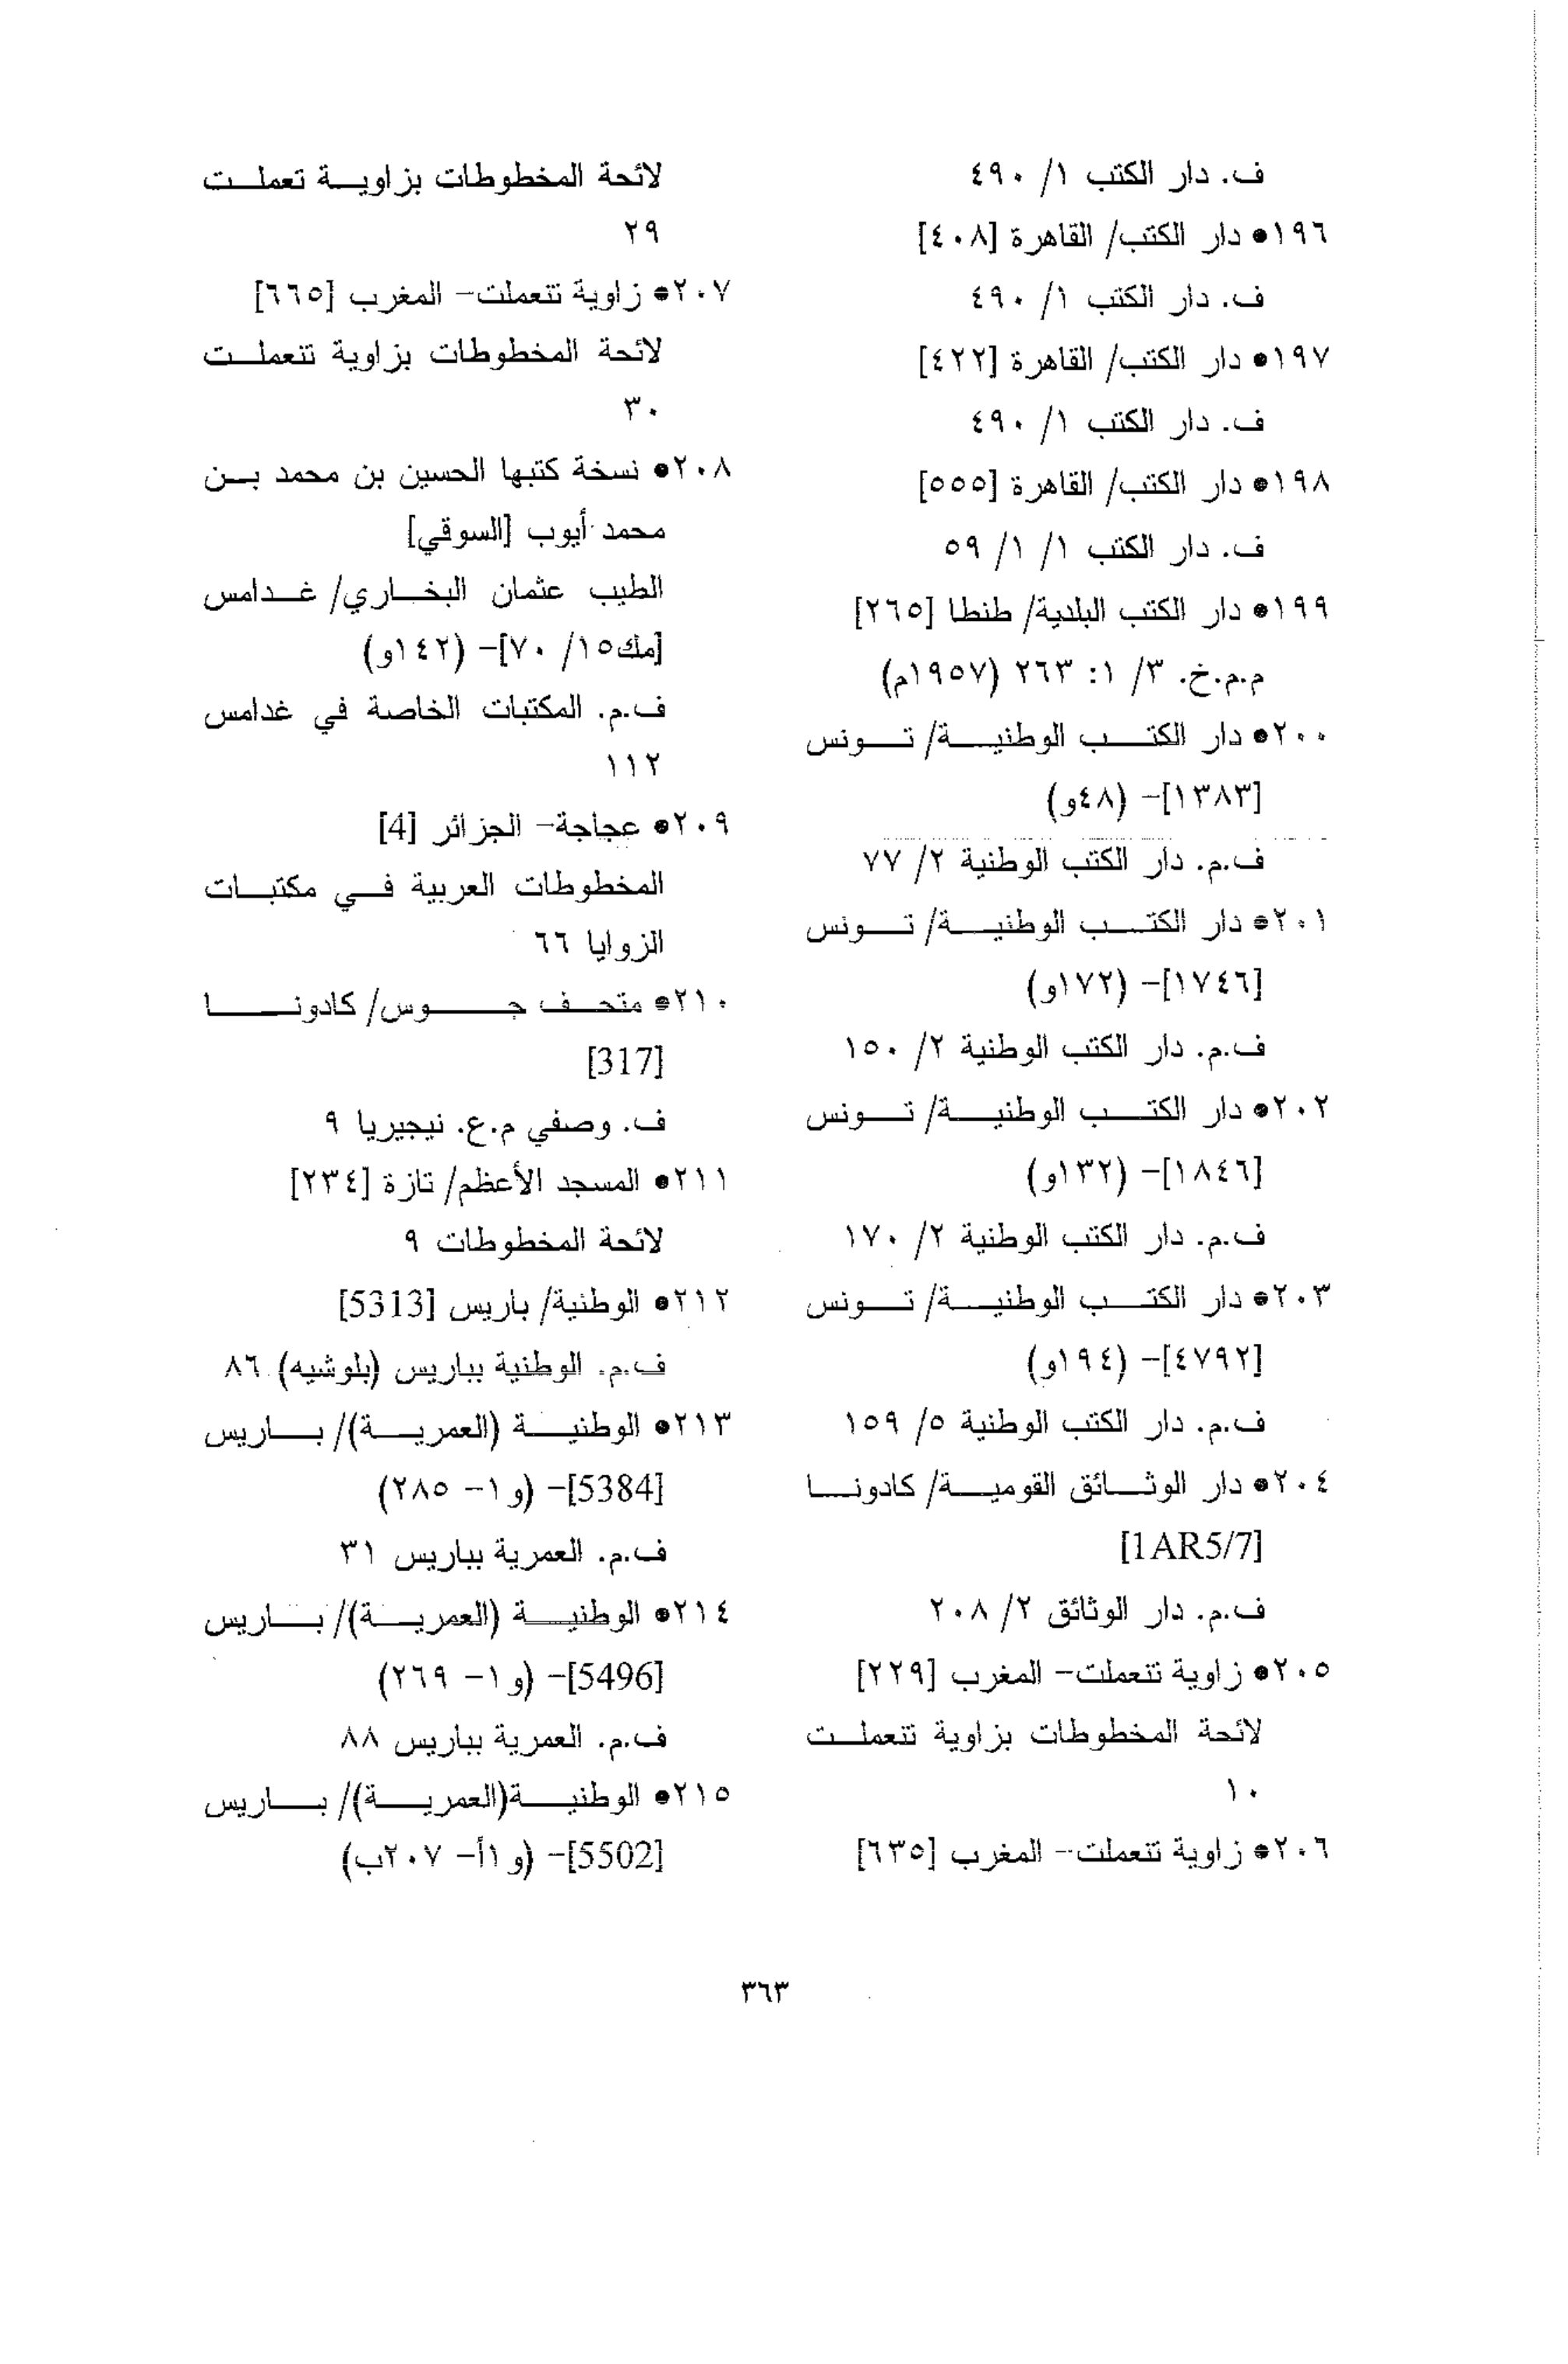 ف. دار الكتب ١/ ٤٩٠
١٩٦• دار الكتب/ القاهرة [٤٠٨]
ف. دار الكتب ١/ ٤٩٠
١٩٧• دار الكتب/ القاهرة [٤٢٢]
ف. دار الكتب ١/ ٤٩٠
١٩٨• دار الكتب/ القاهرة [٥٥٥]
ف. دار الكتب ١/ ١/ ٥٩
١٩٩• دار الكتب البلدية/ طنطا [٢٦٥]
م.م.خ. ٣/ ١: ٢٦٣ (١٩٥٧م)
٢٠٠• دار الكتب الوطنية/ تونس
[١٣٨٣]- (٤٨و)
ف.م. دار الكتب الوطنية ٢/ ٧٧
٢٠١• دار الكتب الوطنية/ تونس
[١٧٤٦]- (١٧٢و)
ف.م. دار الكتب الوطنية ٢/ ١٥٠
٢٠٢• دار الكتب الوطنية/ تونس
[١٨٤٦]- (١٣٢و)
ف.م. دار الكتب الوطنية ٢/ ١٧٠
٢٠٣• دار الكتب الوطنية/ تونس
[٤٧٩٢]- (١٩٤و)
ف.م. دار الكتب الوطنية ٥/ ١٥٩
٢٠٤• دار الوثائق القومية/ كادونا
[1AR5/7]
ف.م. دار الوثائق ٢/ ٢٠٨
٢٠٥• زاوية تتعملت- المغرب [٢٢٩]
لائحة المخطوطات بزاوية تتعملت
١٠
٢٠٦• زاوية تتعملت- المغرب [٦٣٥]
لائحة المخطوطات بزاوية تعملت
٢٩
٢٠٧• زاوية تتعملت- المغرب [٦٦٥]
لائحة المخطوطات بزاوية تتعملت
٣٠
٢٠٨• نسخة كتبها الحسين بن محمد بن
محمد أيوب [السوقي]
الطيب عثمان البخاري/ غدامس
[مك١٥/ ٧٠]- (١٤٢و)
ف.م. المكتبات الخاصة في غدامس
١١٢
٢٠٩• عجاجة- الجزائر [4]
المخطوطات العربية في مكتبات
الزوايا ٦٦
٢١٠• متحف جوس/ كادونا
[317]
ف. وصفي م.ع. نيجيريا ٩
٢١١• المسجد الأعظم/ تازة [٢٣٤]
لائحة المخطوطات ٩
٢١٢• الوطنية/ باريس [5313]
ف.م. الوطنية بباريس (بلوشيه) ٨٦
٢١٣• الوطنية (العمرية)/ باريس
[5384]- (و١- ٢٨٥)
ف.م. العمرية بباريس ٣١
٢١٤• الوطنية (العمرية)/ باريس
[5496]- (و١- ٢٦٩)
ف.م. العمرية بباريس ٨٨
٢١٥• الوطنية(العمرية)/ باريس
[5502]- (و١أ- ٢٠٧ب)
٣٦٣